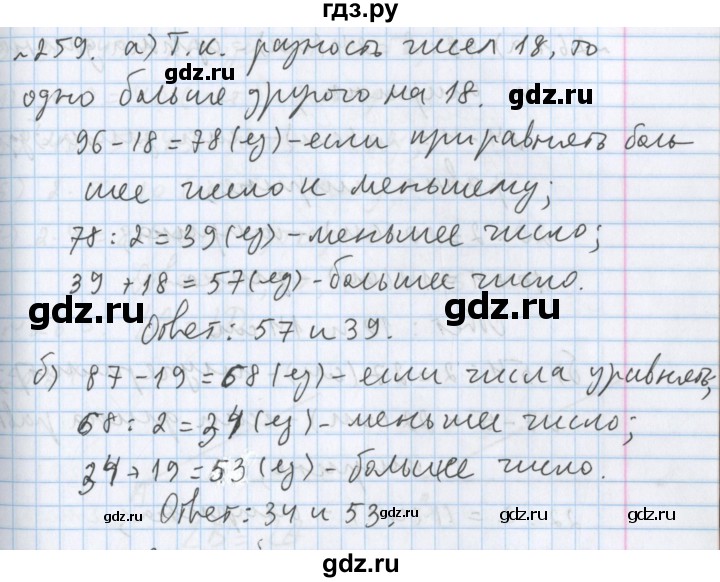 гдз.ру
№259. а) Т.к. разность чисел 18, то
gdz.ru gdz.ru
одно больше другого на 18.
96 - 18 = 78 (ед) - если приравнять боль
шее число к меньшему;
gdz.ru gdz.ru
78 : 2 = 39 (ед) - меньшее число;
39 + 18 = 57 (ед) - большее число.
gdz.ru gdz.ru
Ответ: 57 и 39.
б) 87 - 19 = 68 (ед) - если числа уравнять;
gdz.ru gdz.ru
68 : 2 = 34 (ед) - меньшее число;
34 + 19 = 53 (ед) - большее число.
gdz.ru gdz.ru
Ответ: 34 и 53.
gdz.ru gdz.ru gdz.ru gdz.ru
гдз.ру